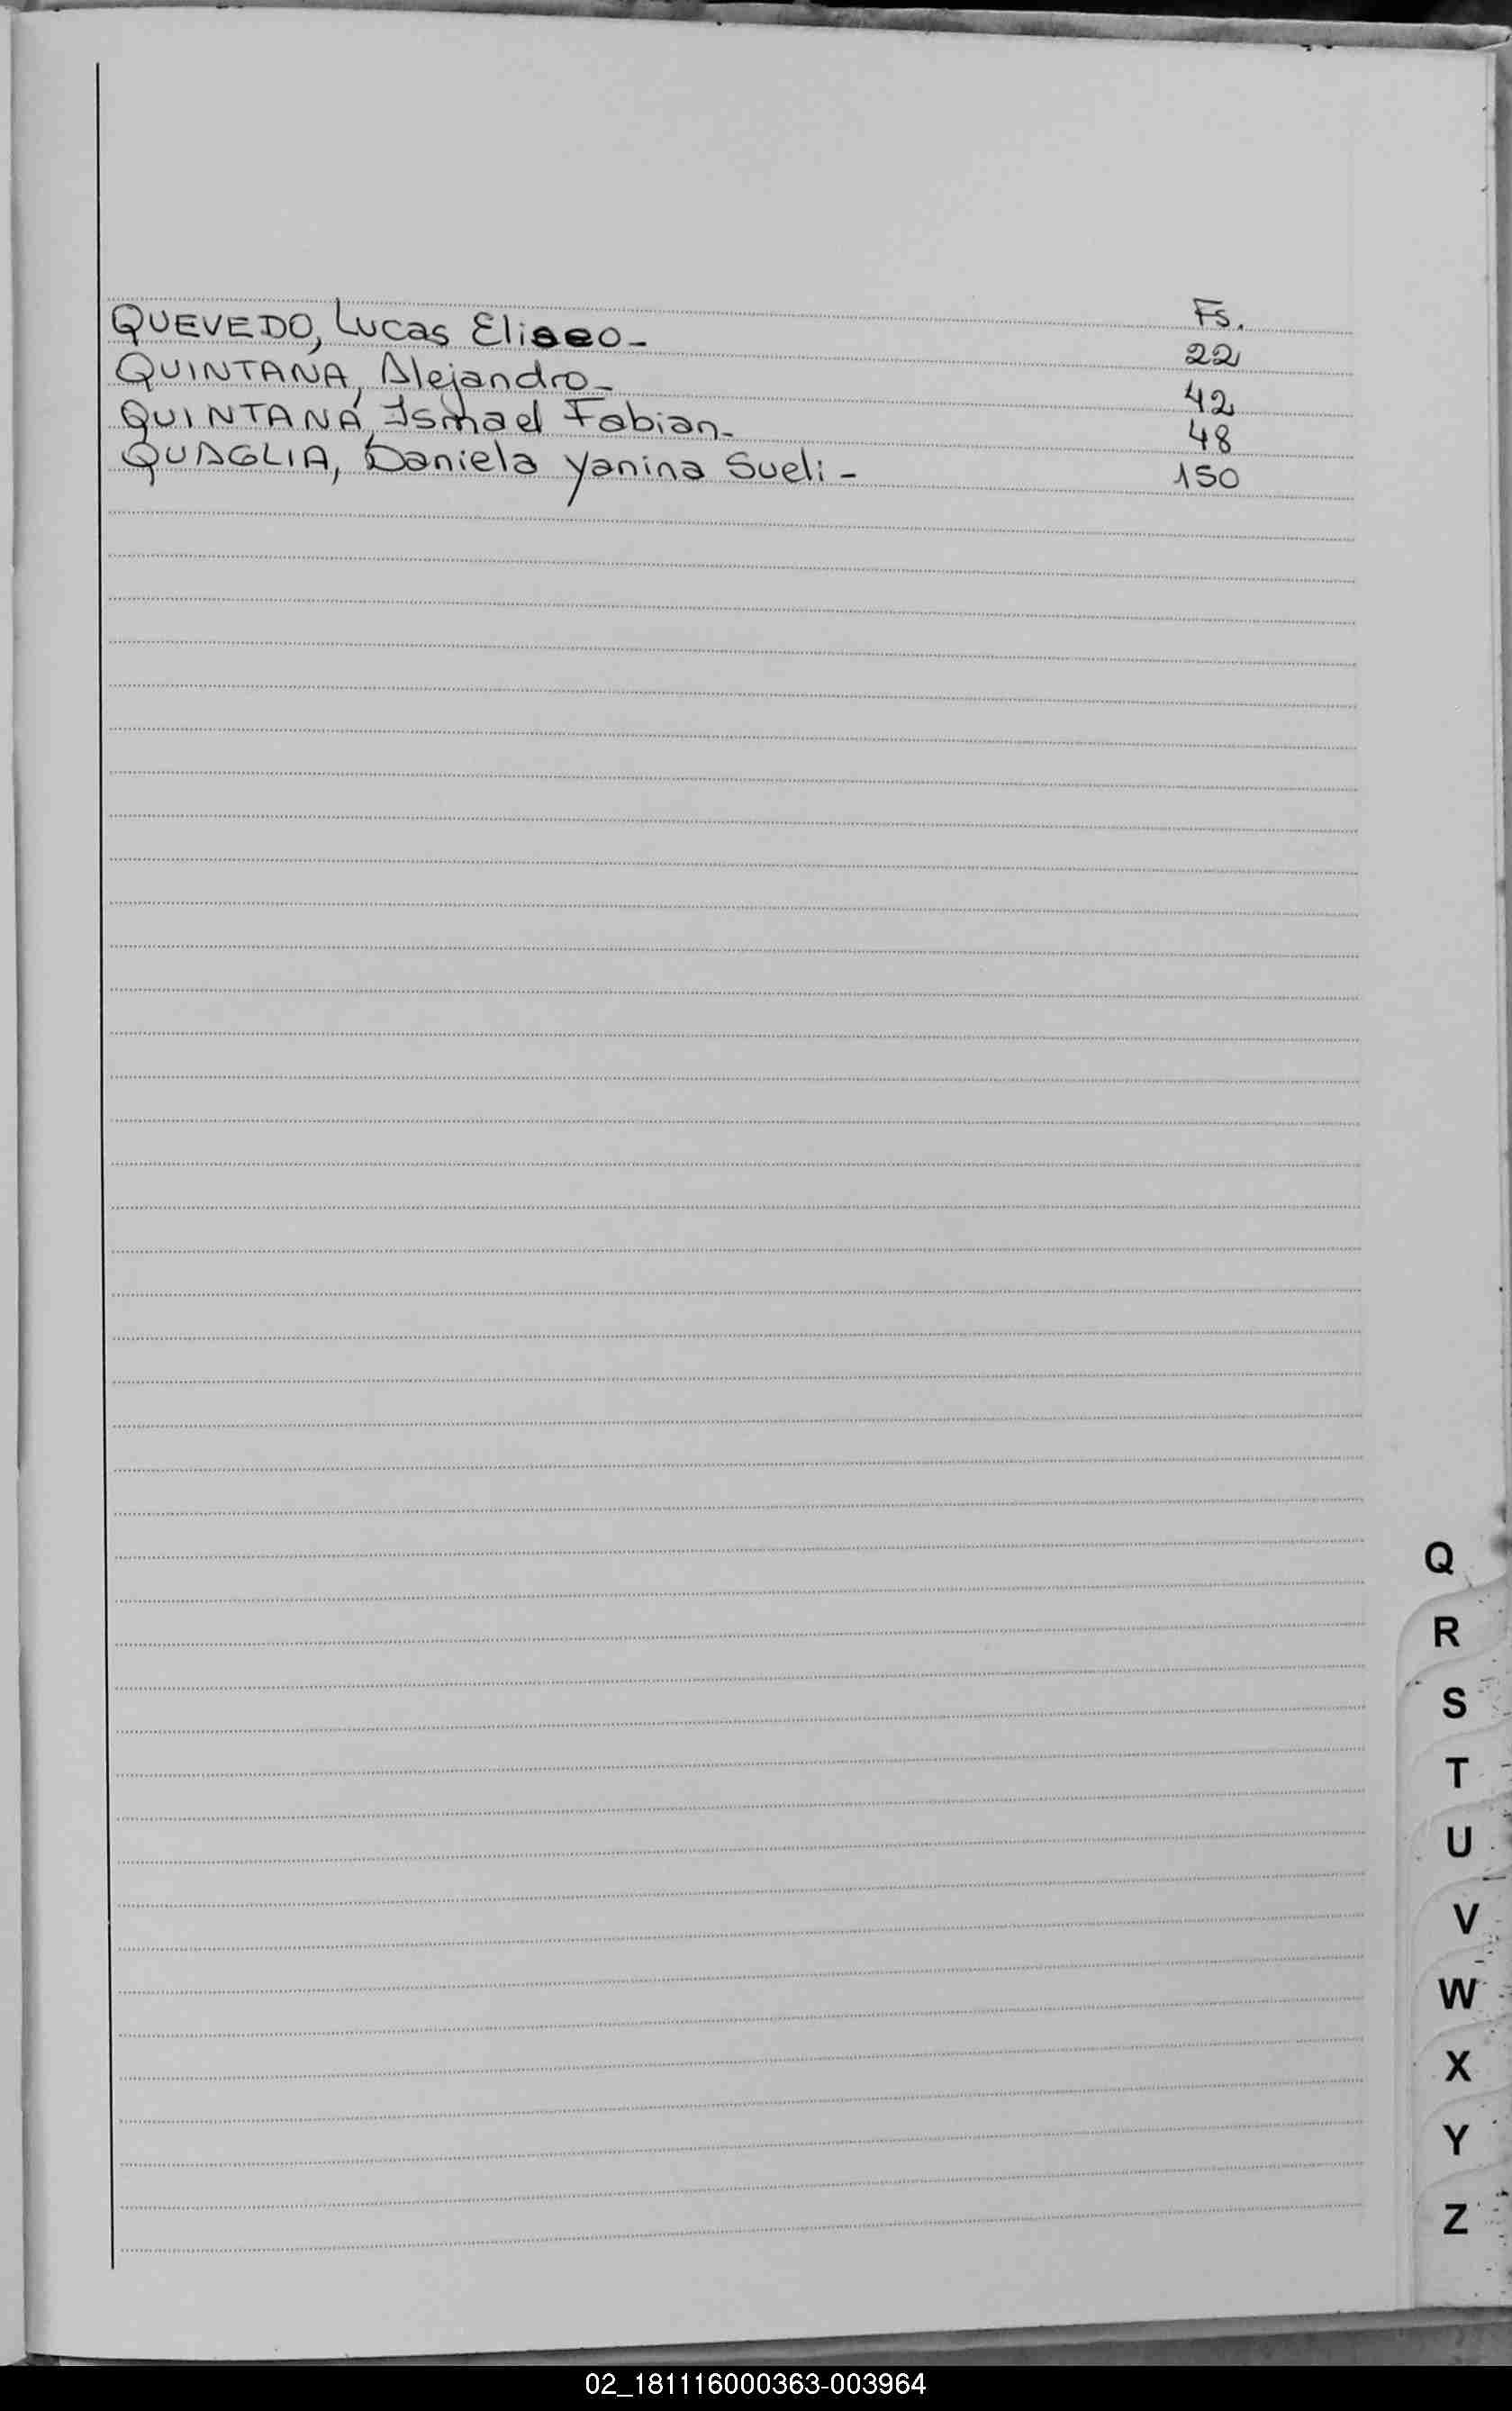 Fs.
QUEVEDO, Lucas Eliseo- 22
QUINTANA, Alejandro- 42
QUINTANA, Ismael Fabian- 48
QUAGLIA, Daniela Yanina Sueli- 150
Q
R
S
T
U
V
W
X
Y
Z
02_181116000363-003964